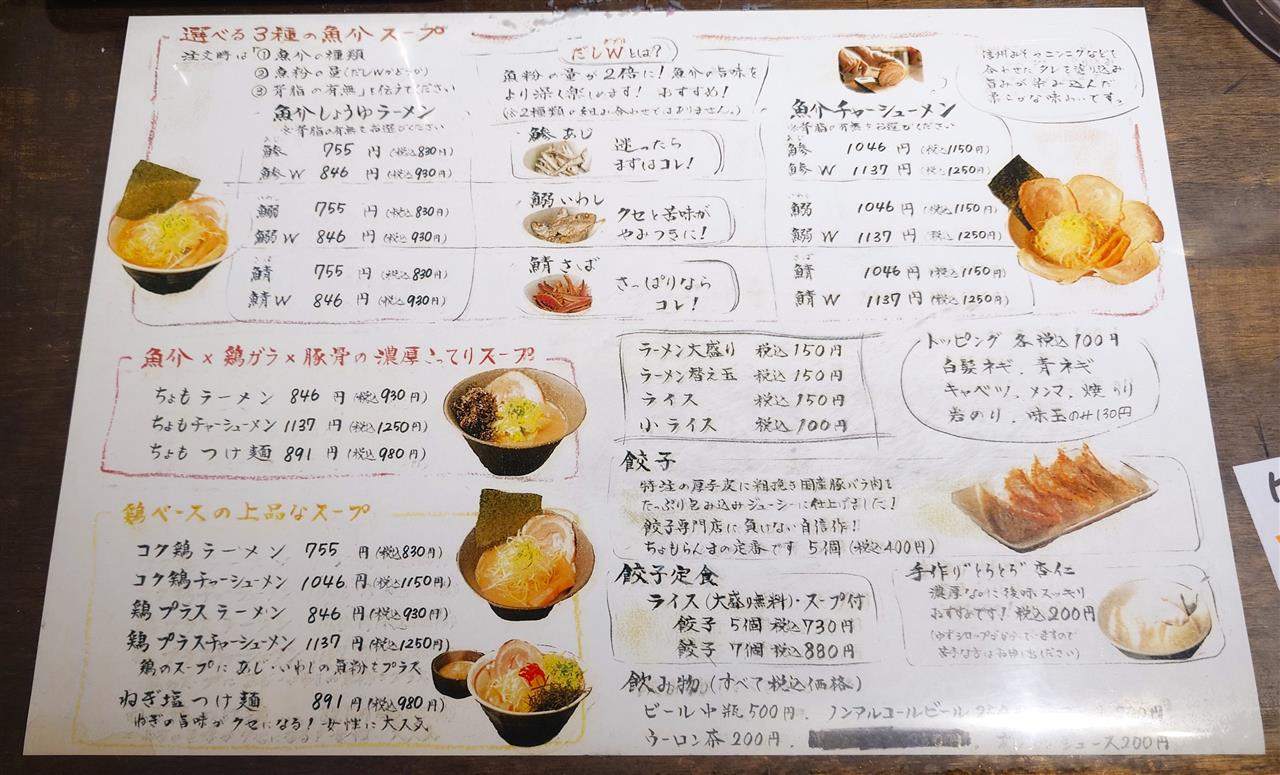 選べる3種の魚介スープ
注文時は①魚介の種類
②魚粉の量(だしWかどうか)
③背脂の有無」を伝えてください
魚介しょうゆラーメン
※背脂の有無をお選びください
あじ
鯵 755円(税込830円)
鯵W 846円(税込930円)
いわし
鰯 755円(税込830円)
鰯W 846円(税込930円)
さば
鯖 755円(税込830円)
鯖W 846円(税込930円)
だしWとは?
ダブル
魚粉の量が2倍に!魚介の旨味を
より深く楽しめます! おすすめ!
(※2種類の組み合わせではありません。)
鯵あじ
迷ったら
まずはコレ!
鰯いわし
クセと苦味が
やみつきに!
鯖さば
さっぱりなら
コレ!
信州みそやニンニクなどを
合わせたタレを塗り込み
旨みが染み込んだ
柔らかな味わいです。
魚介チャーシューメン
※背脂の有無をお選びください
あじ
鯵 1046円(税込1150円)
鯵W 1137円(税込1250円)
いわし
鰯 1046円(税込1150円)
鰯W 1137円(税込1250円)
さば
鯖 1046円(税込1150円)
鯖W 1137円(税込1250円)
魚介×鶏ガラ×豚骨の濃厚こってりスープ
ちょもラーメン 846円(税込930円)
ちょもチャーシューメン 1137円(税込1250円)
ちょもつけ麺 891円(税込980円)
鶏ベースの上品なスープ
コク鶏ラーメン 755円(税込830円)
コク鶏チャーシューメン 1046円(税込1150円)
鶏プラスラーメン 846円(税込930円)
鶏プラスチャーシューメン 1137円(税込1250円)
鶏のスープにあじ・いわしの魚粉をプラス
ねぎ塩つけ麺 891円(税込980円)
ねぎの旨味がクセになる!女性に大人気
ラーメン大盛り 税込150円
ラーメン替え玉 税込150円
ライス 税込150円
小ライス 税込100円
トッピング各税込100円
白髪ネギ、青ネギ
キャベツ、メンマ、焼のり
岩のり、味玉のみ130円
餃子
特注の厚手皮に粗挽き国産豚バラ肉を
たっぷり包み込みジューシーに仕上げました!
餃子専門店に負けない自信作!
ちょもらんまの定番です 5個(税込400円)
餃子定食
ライス(大盛り無料)・スープ付
餃子5個 税込730円
餃子7個 税込880円
手作り"とろとろ"杏仁
濃厚なのに後味スッキリ
おすすめです! 税込200円
(ゆずシロップがかかっていますので
苦手な方はお申し出ください)
飲み物(すべて税込価格)
ビール中瓶500円、ノンアルコールビール
ウーロン茶200円、
ジュース200円